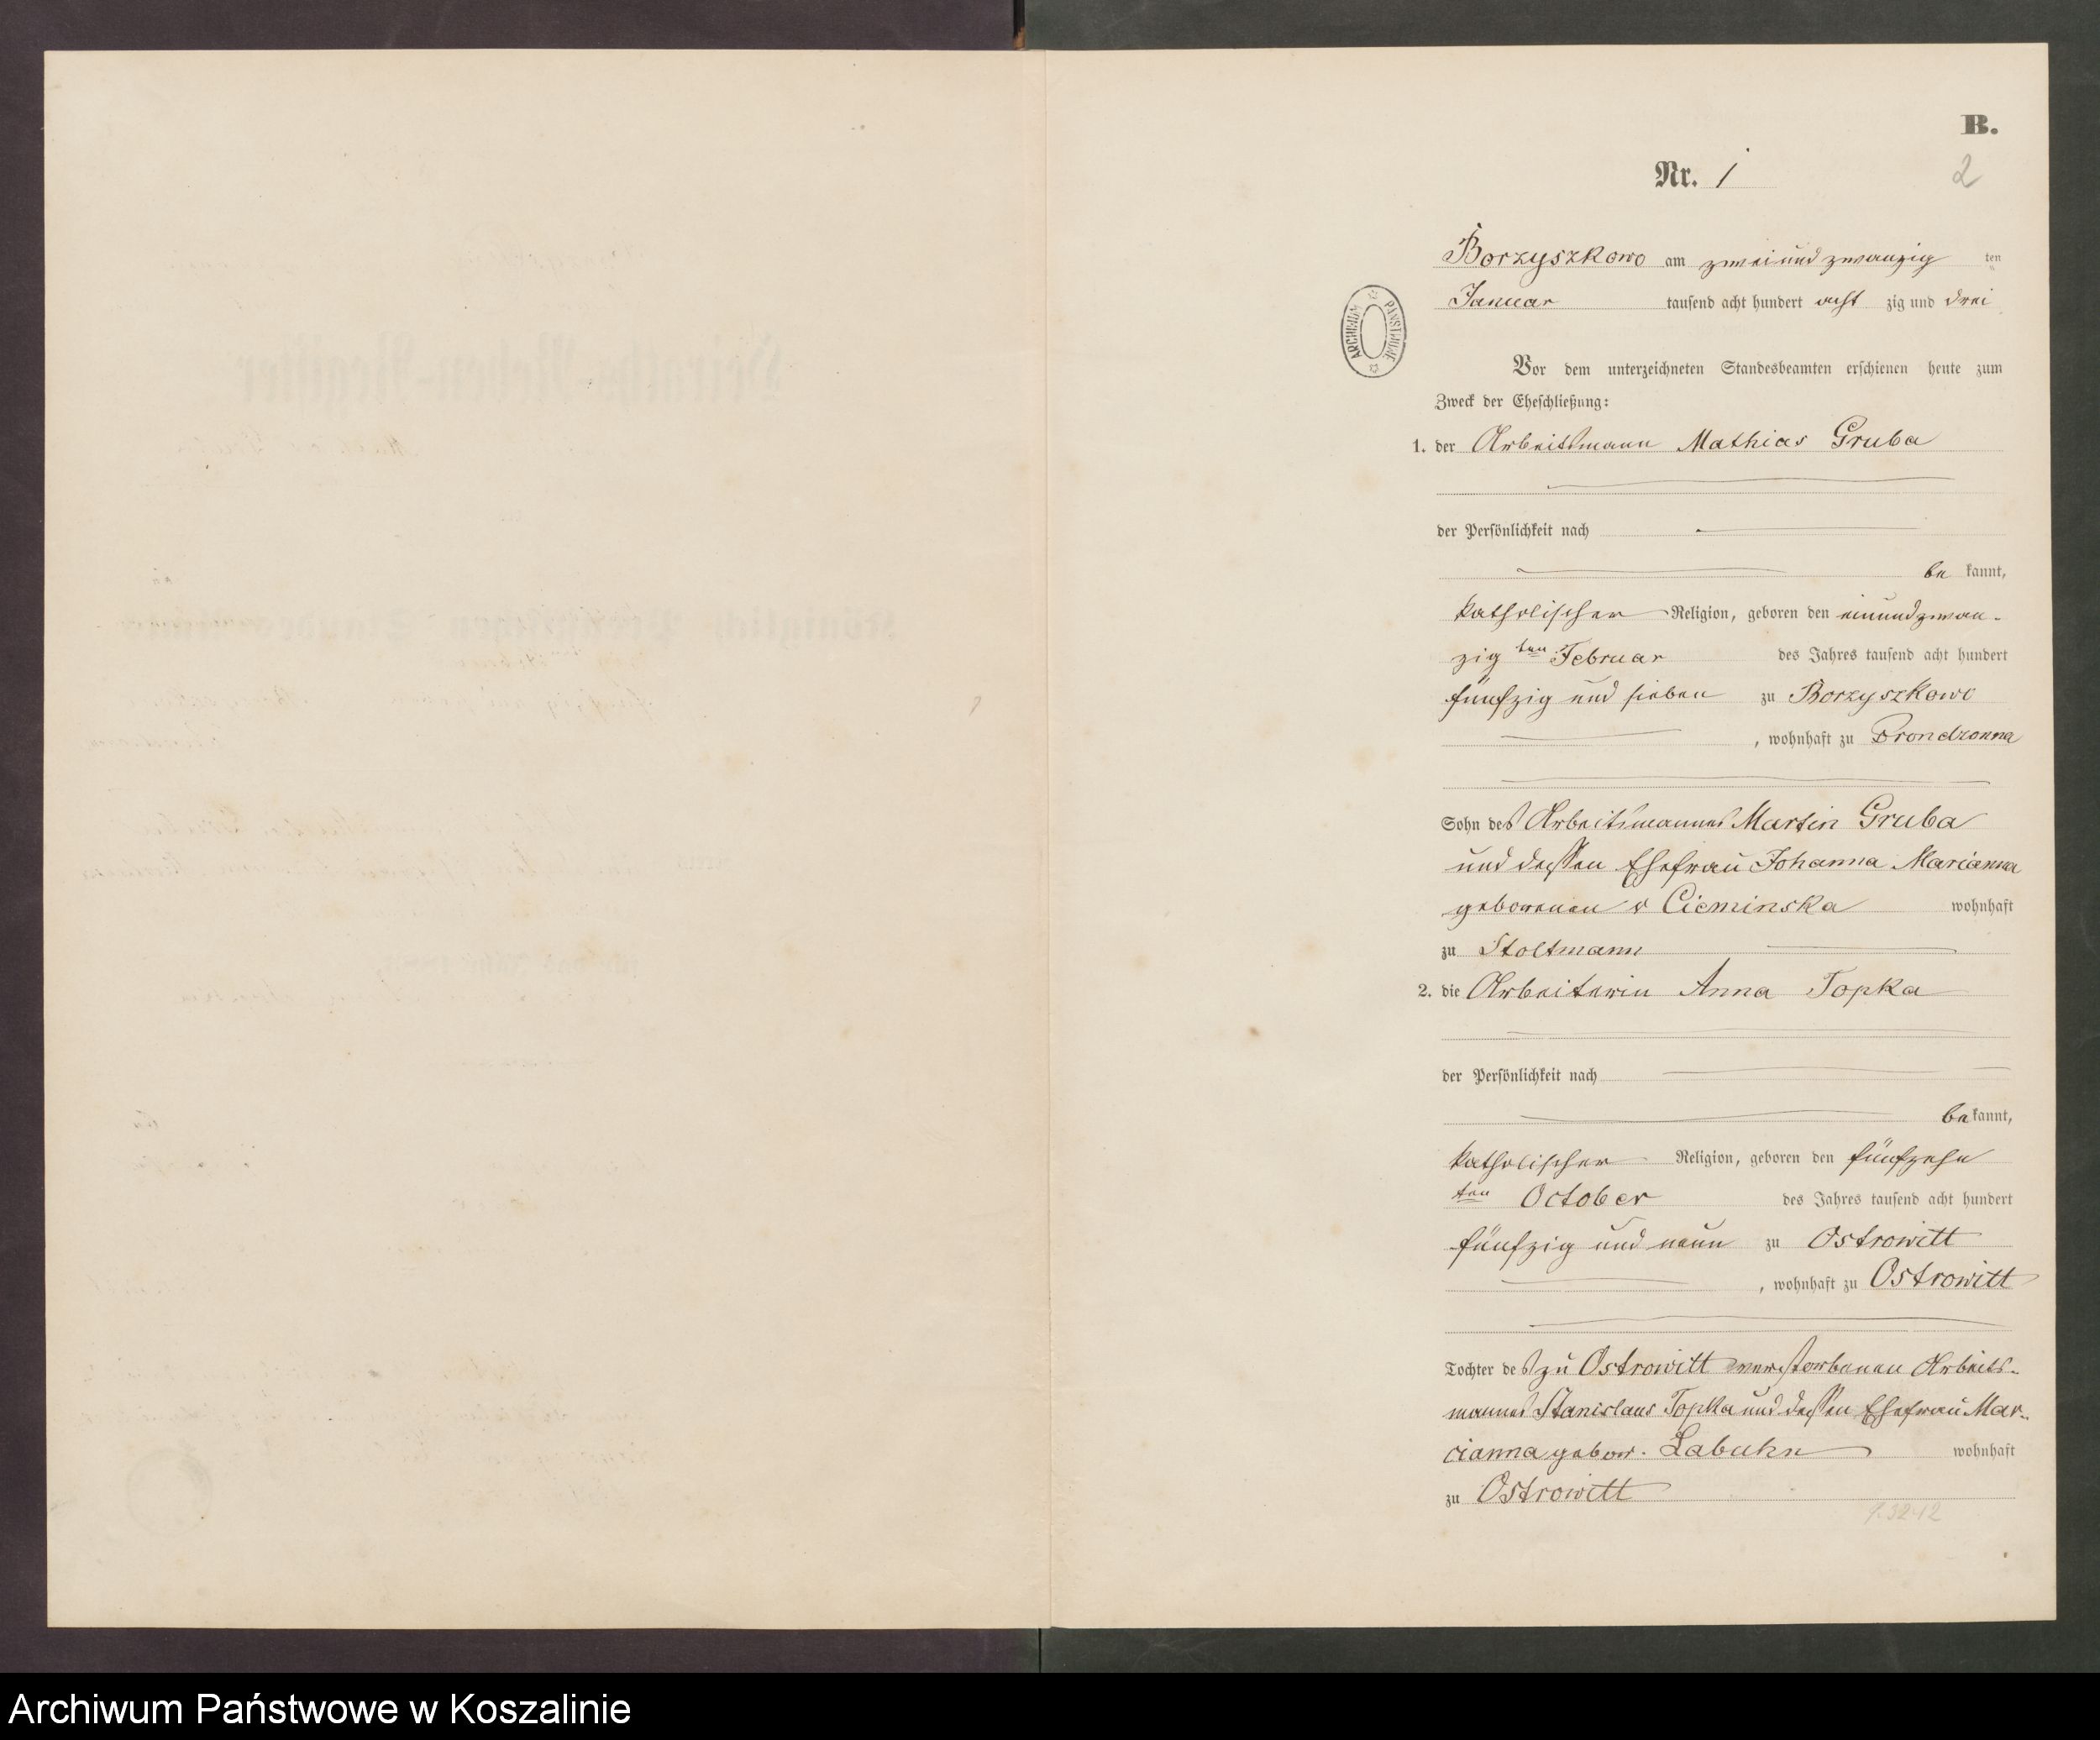 B.
Nr. 1
2
Borzyszkowo am zweiundzwanzig ten
Januar tausend acht hundert acht zig und drei
ARCHIWUM PAŃSTWOWE
Vor dem unterzeichneten Standesbeamten erschienen heute zum
Zweck der Eheschließung:
1. der Arbeitsmann Mathias Gruba
der Persönlichkeit nach
be kannt,
katholischer Religion, geboren den einundzwan-
zig ten Februar des Jahres tausend acht hundert
fünfzig und sieben zu Borzyszkowo
, wohnhaft zu
Sohn des Arbeitsmannes Martin Gruba
und dessen Ehefrau Johanna Marianna
geborenen v Cieminska wohnhaft
zu Stoltmann
2. die Arbeiterin Anna Topka
der Persönlichkeit nach
be kannt,
katholischer Religion, geboren den fünfzehn
ten October des Jahres tausend acht hundert
fünfzig und neun zu Ostrowitt
, wohnhaft zu Ostrowitt
Tochter des zu Ostrowitt verstorbenen Arbeits-
mannes Stanislaus Topka und dessen Ehefrau Mar-
cianna gebor. Labuhn wohnhaft
zu Ostrowitt
Archiwum Państwowe w Koszalinie